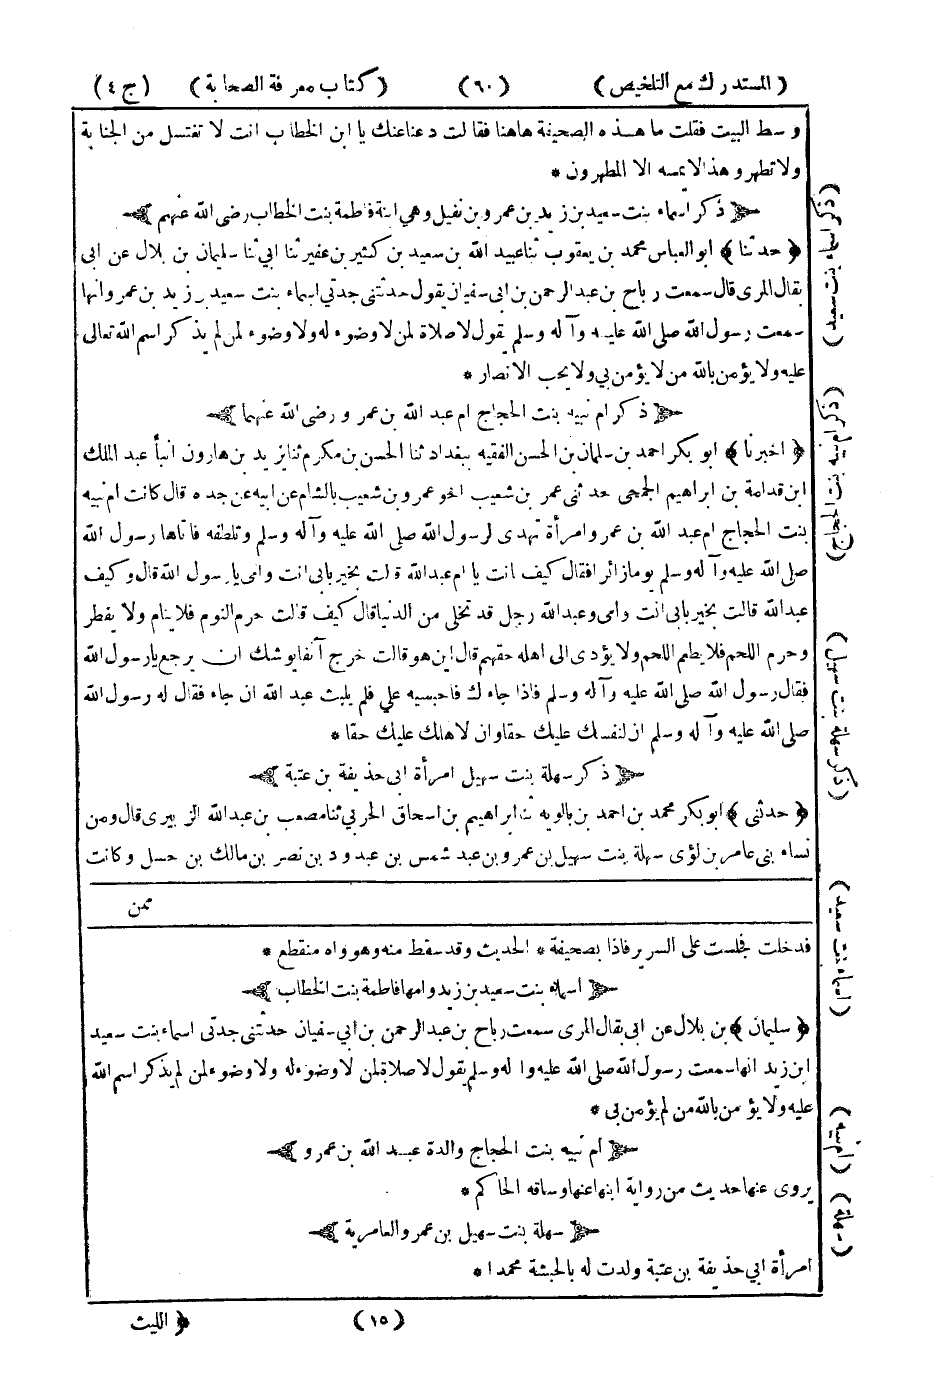 (المستدرك مع التلخيص) (٦٠) (كتاب معرفة الصحابة) (ج ٤)
وسط البيت فقلت ما هذه الصحيفة هاهنا فقالت دعنا عنك يا ابن الخطاب انت لا تغتسل من الجنابة
ولا تطهر وهذا لا يمسه الا المطهرون *
﴿ ذكر اسماء بنت سعيد بن زيد بن عمرو بن نفيل وهي ابنة فاطمة بنت الخطاب رضى الله عنهم ﴾
﴿ حدثنا ﴾ ابو العباس محمد بن يعقوب ثنا عبيد الله بن سعيد بن كثير بن عفير ثنا ابي ثنا سليمان بن بلال عن ابى
ثفال المرى قال سمعت رباح بن عبد الرحمن بن ابى سفيان يقول حدثتنى جدتي اسماء بنت سعيد بن زيد بن عمر وانها
سمعت رسول الله صلى الله عليه وآله وسلم يقول لا صلاة لمن لا وضوء له ولا وضوء لمن لم يذكر اسم الله تعالى
عليه ولا يؤمن بالله من لا يؤمن بي ولا يحب الانصار *
﴿ ذكر ام نبيه بنت الحجاج ام عبد الله بن عمرو رضى الله عنهما ﴾
﴿ اخبرنا ﴾ ابو بكر احمد بن سلمان بن الحسن الفقيه ببغداد ثنا الحسن بن مكرم ثنا يزيد بن هارون انبأ عبد الملك
ابن قدامة بن ابراهيم الجمحى حدثنى عمر بن شعيب اخو عمرو بن شعيب بالشام عن ابيه عن جده قال كانت ام نبيه
بنت الحجاج ام عبد الله بن عمرو امرأة تهدى لرسول الله صلى الله عليه وآله وسلم وتلطفه فاتاها رسول الله
صلى الله عليه وآله وسلم يوما زائرا فقال كيف انت يا ام عبد الله قالت بخير بابى انت وامى يا رسول الله قال وكيف
عبد الله قالت بخير بابى انت وامى وعبد الله رجل قد تخلى من الدنيا قال كيف قالت حرم النوم فلا ينام ولا يفطر
وحرم اللحم فلا يطعم اللحم ولا يؤدى الى اهله حقهم قال اين هو قالت خرج آنفا يوشك ان يرجع يا رسول الله
فقال رسول الله صلى الله عليه وآله وسلم فاذا جاءك فاحبسيه علي فلم يلبث عبد الله ان جاء فقال له رسول الله
صلى الله عليه وآله وسلم ان لنفسك عليك حقا وان لاهلك عليك حقا *
﴿ ذكر سهلة بنت سهيل امرأة ابى حذيفة بن عتبة ﴾
﴿ حدثنى ﴾ ابو بكر محمد بن احمد بن بالويه ثنا ابراهيم بن اسحاق الحربي ثنا مصعب بن عبد الله الزبيرى قال ومن
نساء بنى عامر بن لؤى سهلة بنت سهيل بن عمرو بن عبد شمس بن عبدود بن نصر بن مالك بن حسل وكانت
ممن
فدخلت فجلست على السرير فاذا بصحيفة * الحديث وقد سقط منه وهو واه منقطع *
﴿ اسماء بنت سعيد بن زيد وامها فاطمة بنت الخطاب ﴾
﴿ سليمان ﴾ بن بلال عن ابى ثفال المرى سمعت رباح بن عبد الرحمن بن ابى سفيان حدثتنى جدتى اسماء بنت سعيد
ابن زيد انها سمعت رسول الله صلى الله عليه وآله وسلم يقول لا صلاة لمن لا وضوء له ولا وضوء لمن لم يذكر اسم الله
عليه ولا يؤمن بالله من لم يؤمن بى *
﴿ ام نبيه بنت الحجاج والدة عبد الله بن عمرو ﴾
يروى عنها حديث من رواية ابنها عنها وساقه الحاكم *
﴿ سهلة بنت سهيل بن عمرو العامرية ﴾
امرأة ابي حذيفة بن عتبة ولدت له بالحبشة محمدا *
(١٥) ﴿ الليث
(ذكر اسماء بنت سعيد)
(ذكر ام نبيه بنت الحجاج)
(ذكر سهلة بنت سهيل)
(اسماء بنت سعيد)
(ام نبيه)
(سهلة)